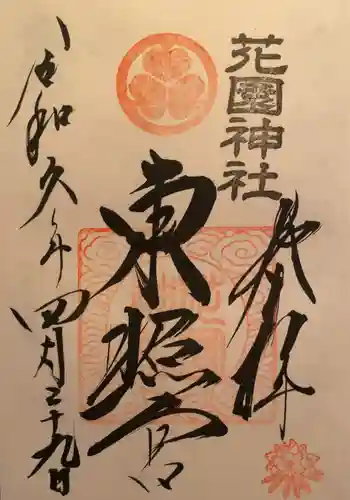 花園神社
奉拝
東照宮
令和六年四月二十九日